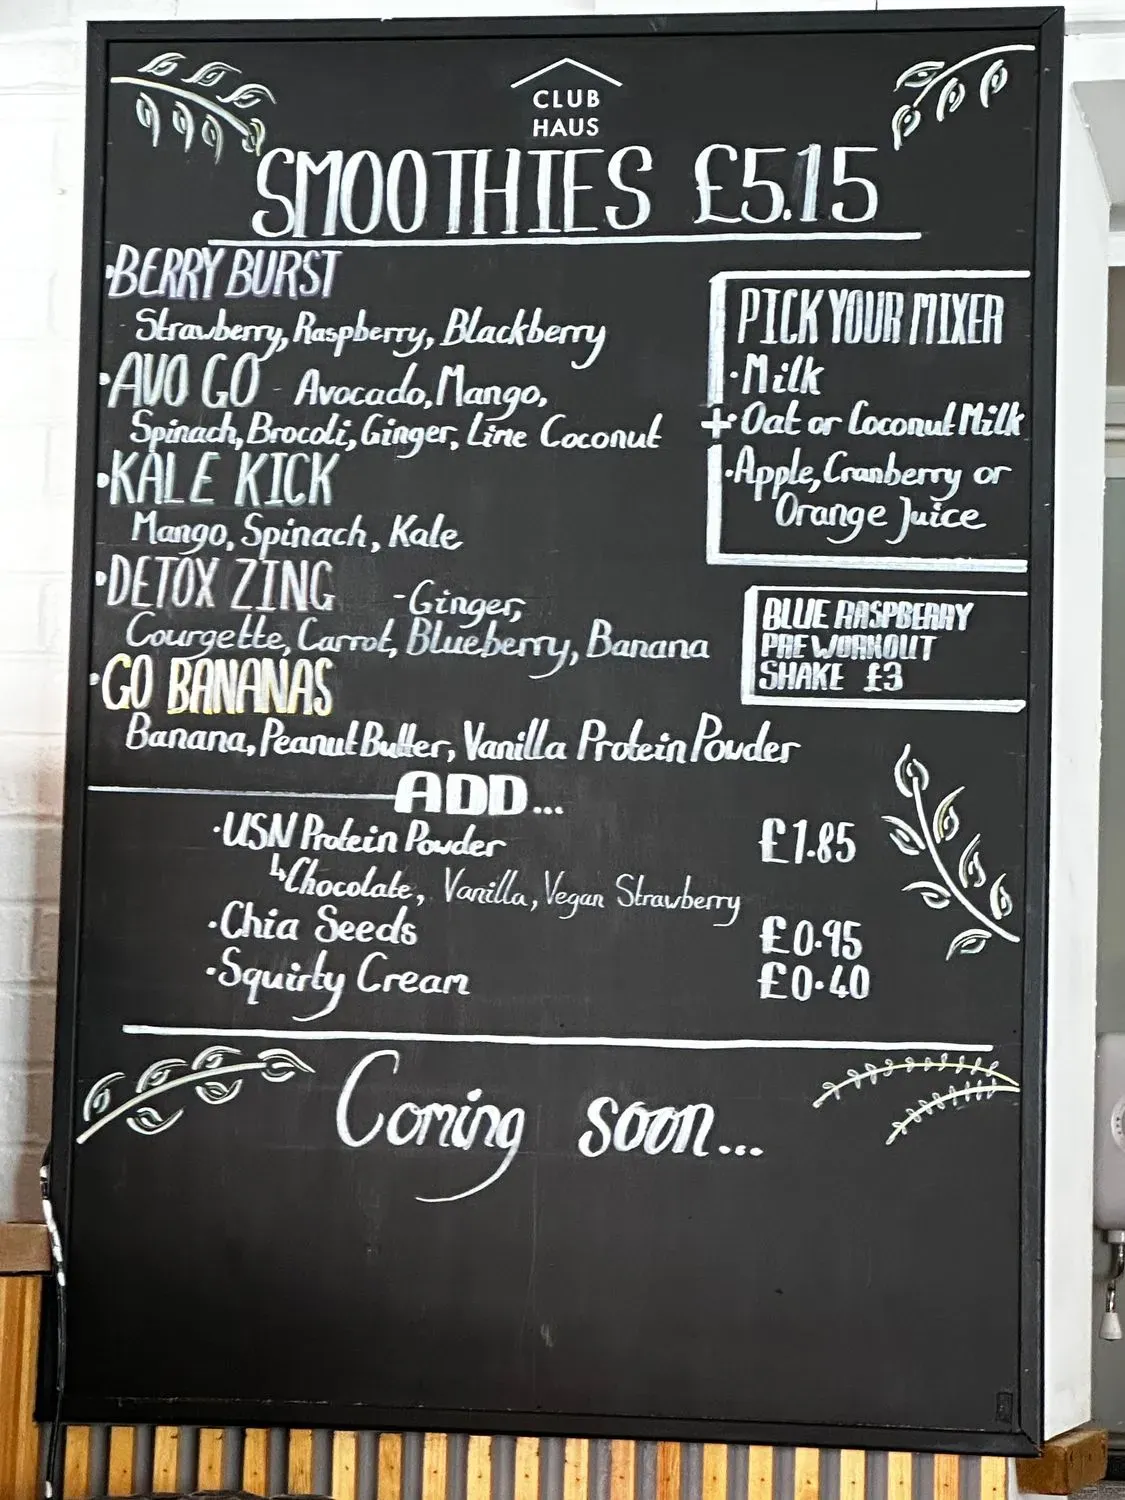 CLUB
HAUS
SMOOTHIES £5.15
·BERRY BURST
Strawberry, Raspberry, Blackberry
·AVO GO - Avocado, Mango,
Spinach, Brocoli, Ginger, Lime Coconut
·KALE KICK
Mango, Spinach, Kale
·DETOX ZING - Ginger,
Courgette, Carrot, Blueberry, Banana
·GO BANANAS
Banana, Peanut Butter, Vanilla Protein Powder
PICK YOUR MIXER
·Milk
+·Oat or Coconut Milk
·Apple, Cranberry or
Orange Juice
BLUE RASPBERRY
PREWORKOUT
SHAKE £3
ADD...
·USN Protein Powder £1.85
↳Chocolate, Vanilla, Vegan Strawberry
·Chia Seeds £0.95
·Squirty Cream £0.40
Coming soon...